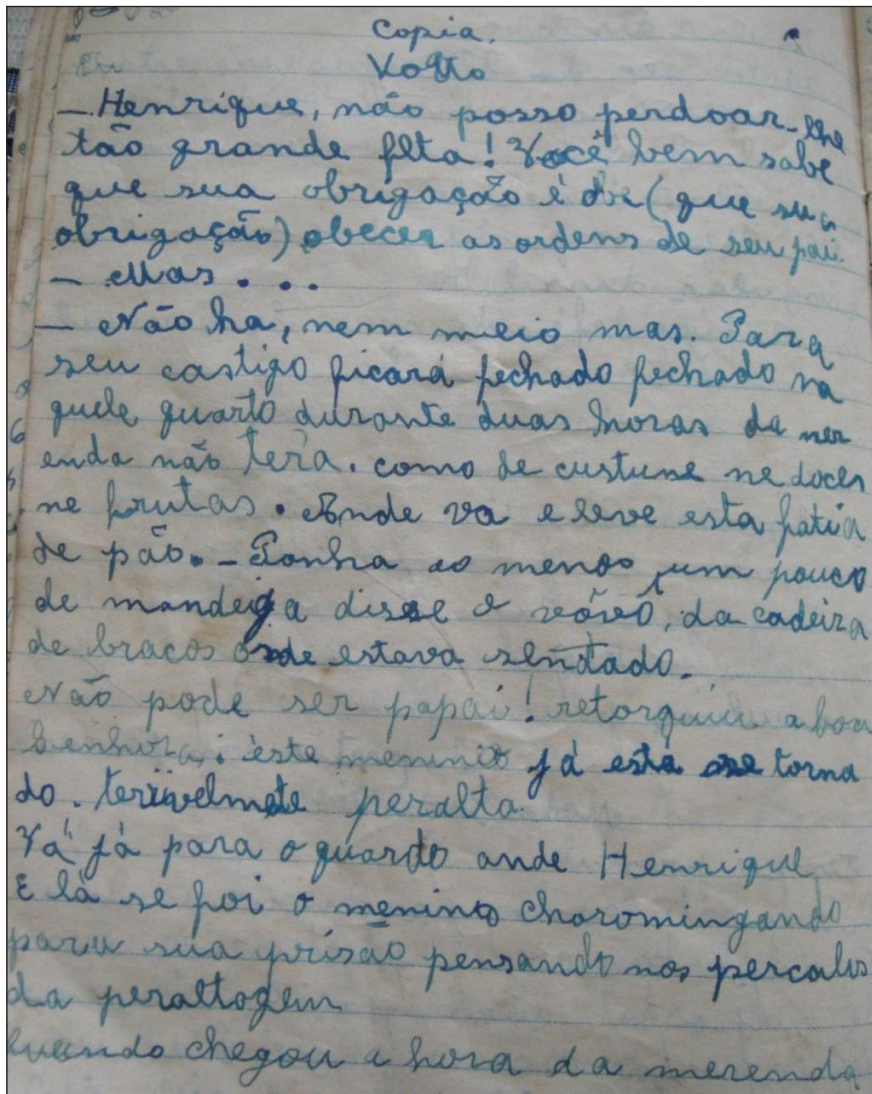 Copia.
Votto
— Henrique, não posso perdoar-lhe
tão grande flta! Você bem sabe
que sua obrigação é obe (que sua
obrigação) obecer as ordens de seu pai.
— Mas . . .
— Não ha, nem meio mas. Para
seu castigo ficará fechado fechado na
quele quarto durante duas horas da mer
enda não terá. como de custune ne doces
ne frutas. Ande va e leve esta fatia
de pão. — Ponha ao menos um pouco
de mandeiga disse o vôvô, da cadeira
de bracos onde estava sentado.
Não pode ser papai! retorquiu a boa
senhora; êste menino já está se torna
do. terrivelmete peralta.
Vá já para o quardo ande Henrique
E lá se foi o menino choromingando
para sua prisão pensando nos percalos
da peraltagem
Quando chegou a hora da merenda